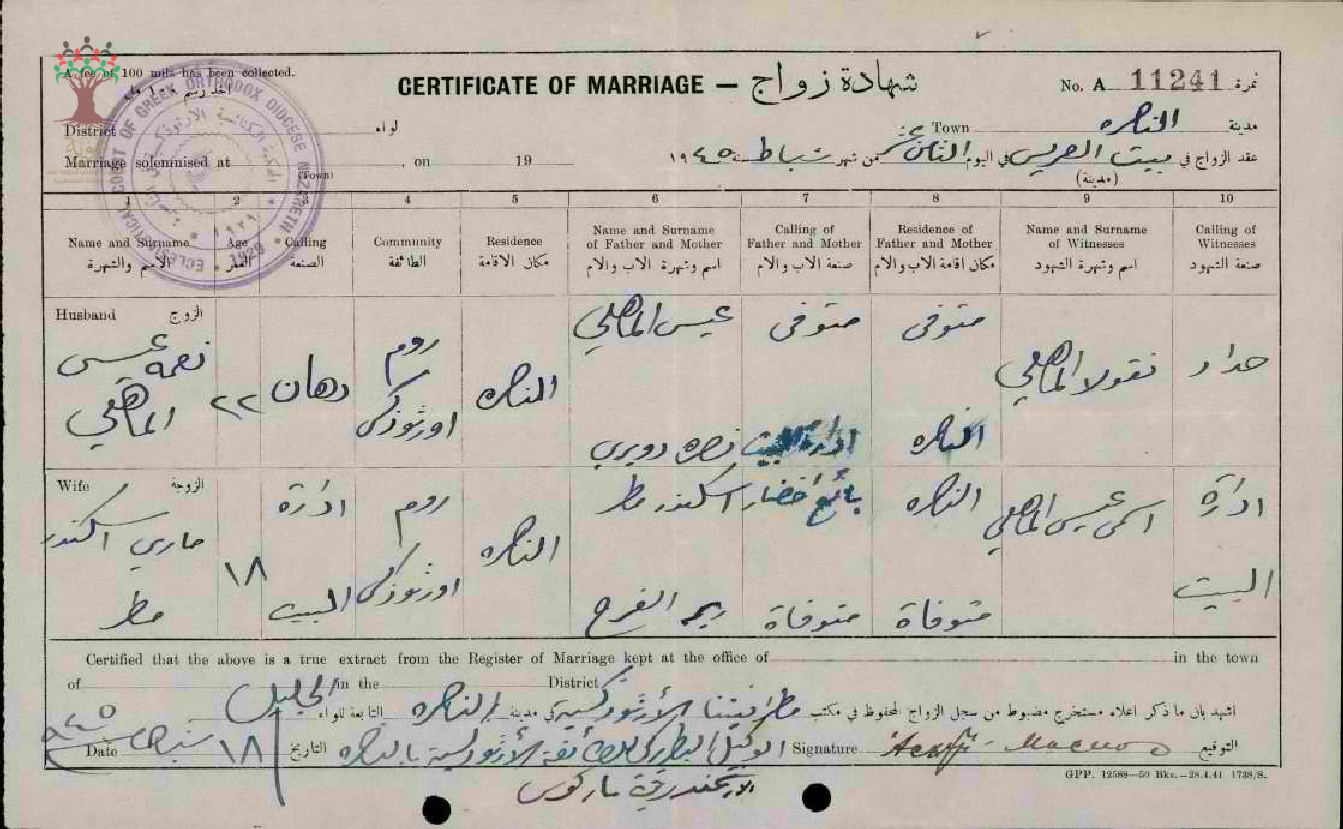 A fee of 100 mils has been collected.
CERTIFICATE OF MARRIAGE — شهادة زواج
No. A 11241 نمرة
District لواء
Town الناصره مدينة
Marriage solemnised at (Town), on 19
عقد الزواج في بيت العريس في اليوم الثاني عشر من شهر شباط سنة ١٩٤٥
(مدينة)
1 2 3 4 5 6 7 8 9 10
Name and Surname الاسم والشهرة
Age العمر
Calling الصنعة
Community الطائفة
Residence مكان الاقامة
Name and Surname of Father and Mother اسم وشهرة الاب والام
Calling of Father and Mother صنعة الاب والام
Residence of Father and Mother مكان اقامة الاب والام
Name and Surname of Witnesses اسم وشهرة الشهود
Calling of Witnesses صنعة الشهود
Husband الزوج
نعمه عيسى
٢٢
دهان
روم
اورثوذكس
الناصره
عيسى
متوفى
متوفى
نصره دويري
ادارة البيت
الناصره
نقولا
حداد
Wife الزوجة
ماري اسكندر
مطر
١٨
ادارة
البيت
روم
اورثوذكس
الناصره
اسكندر مطر
بائع اخضار
الناصره
الفرح
متوفاة
متوفاة
عيسى
ادارة
البيت
Certified that the above is a true extract from the Register of Marriage kept at the office of in the town
of in the District
اشهد بان ما ذكر اعلاه مستخرج مضبوط من سجل الزواج المحفوظ في مكتب مطرانيتنا الأرثوذكسية في مدينة الناصره التابعة للواء الجليل
Date ١٨ التاريخ
الوكيل البطريركي للطائفة الأرثوذكسية بالناصره
Signature التوقيع
الارشمندريت ماركوس
GPP. 12588—50 Bks.—28.4.41 1738/S.
ECCLESIASTICAL COURT OF GREEK ORTHODOX DIOCESE NAZARETH